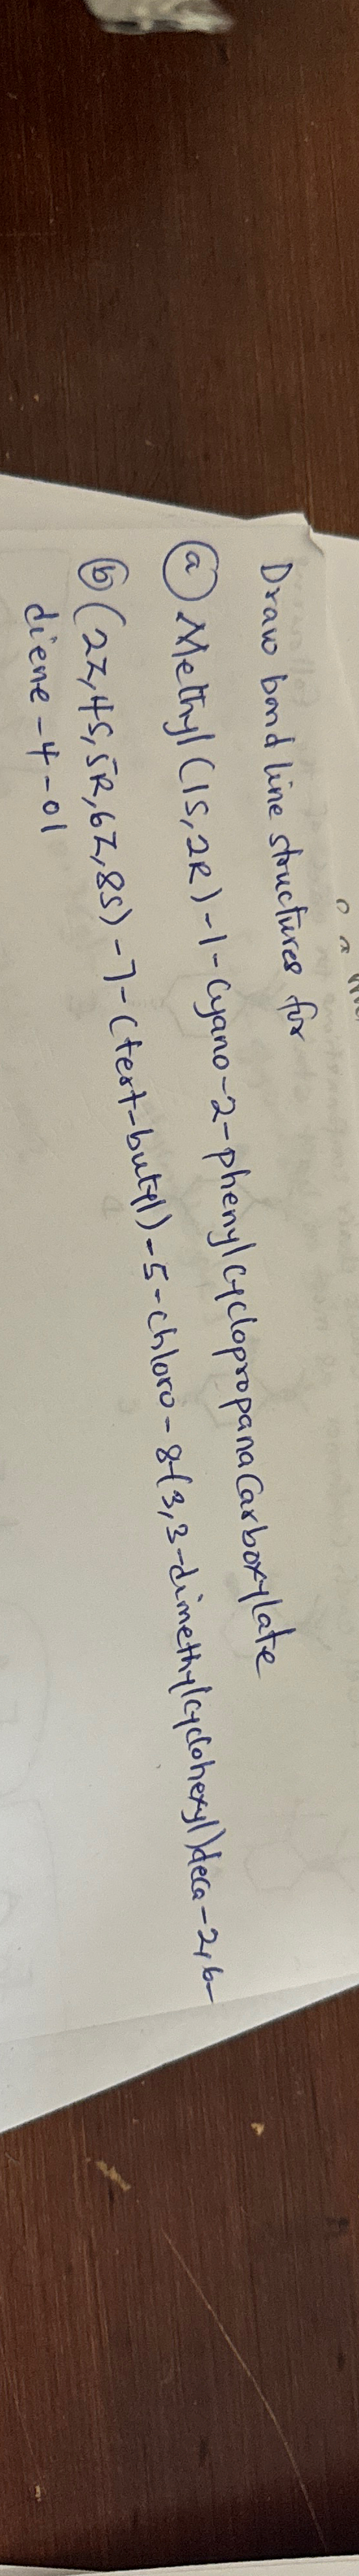 Draw bond line structures for
(a) Methyl (1S,2R)-1-Cyano-2-phenylcyclopropanaCarboxylate
(b) (2Z,4S,5R,6Z,8S)-7-(tert-butyl)-5-chloro-8-(3,3-dimethylcyclohexyl)deca-2,6-
diene-4-ol